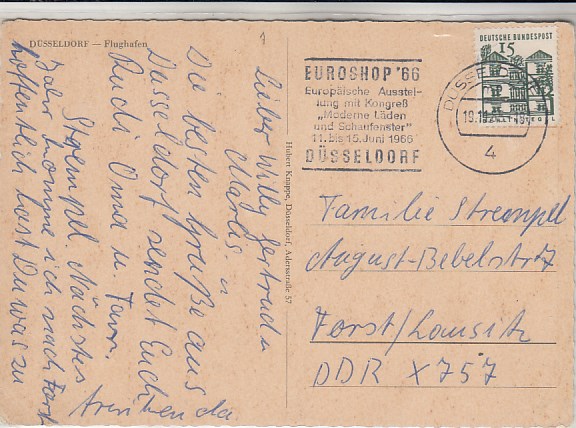 DÜSSELDORF — Flughafen
Lieber Willy Gertrud u
Marlis
Die besten Grüße aus
Düsseldorf sendet Euch
Rudi Oma u. Fam.
Strempel. Nächstes
Jahr komme ich nach Forst
hoffentlich hast Du was zu
trinken da
Hubert Knappe, Düsseldorf, Adersstraße 57
EUROSHOP '66
Europäische Ausstel-
lung mit Kongreß
„Moderne Läden
und Schaufenster"
11. bis 15. Juni 1966
DÜSSELDORF
4
DEUTSCHE BUNDESPOST
15
Familie Strempel
August-Bebelstr 7
Forst/Lausitz
DDR X 757